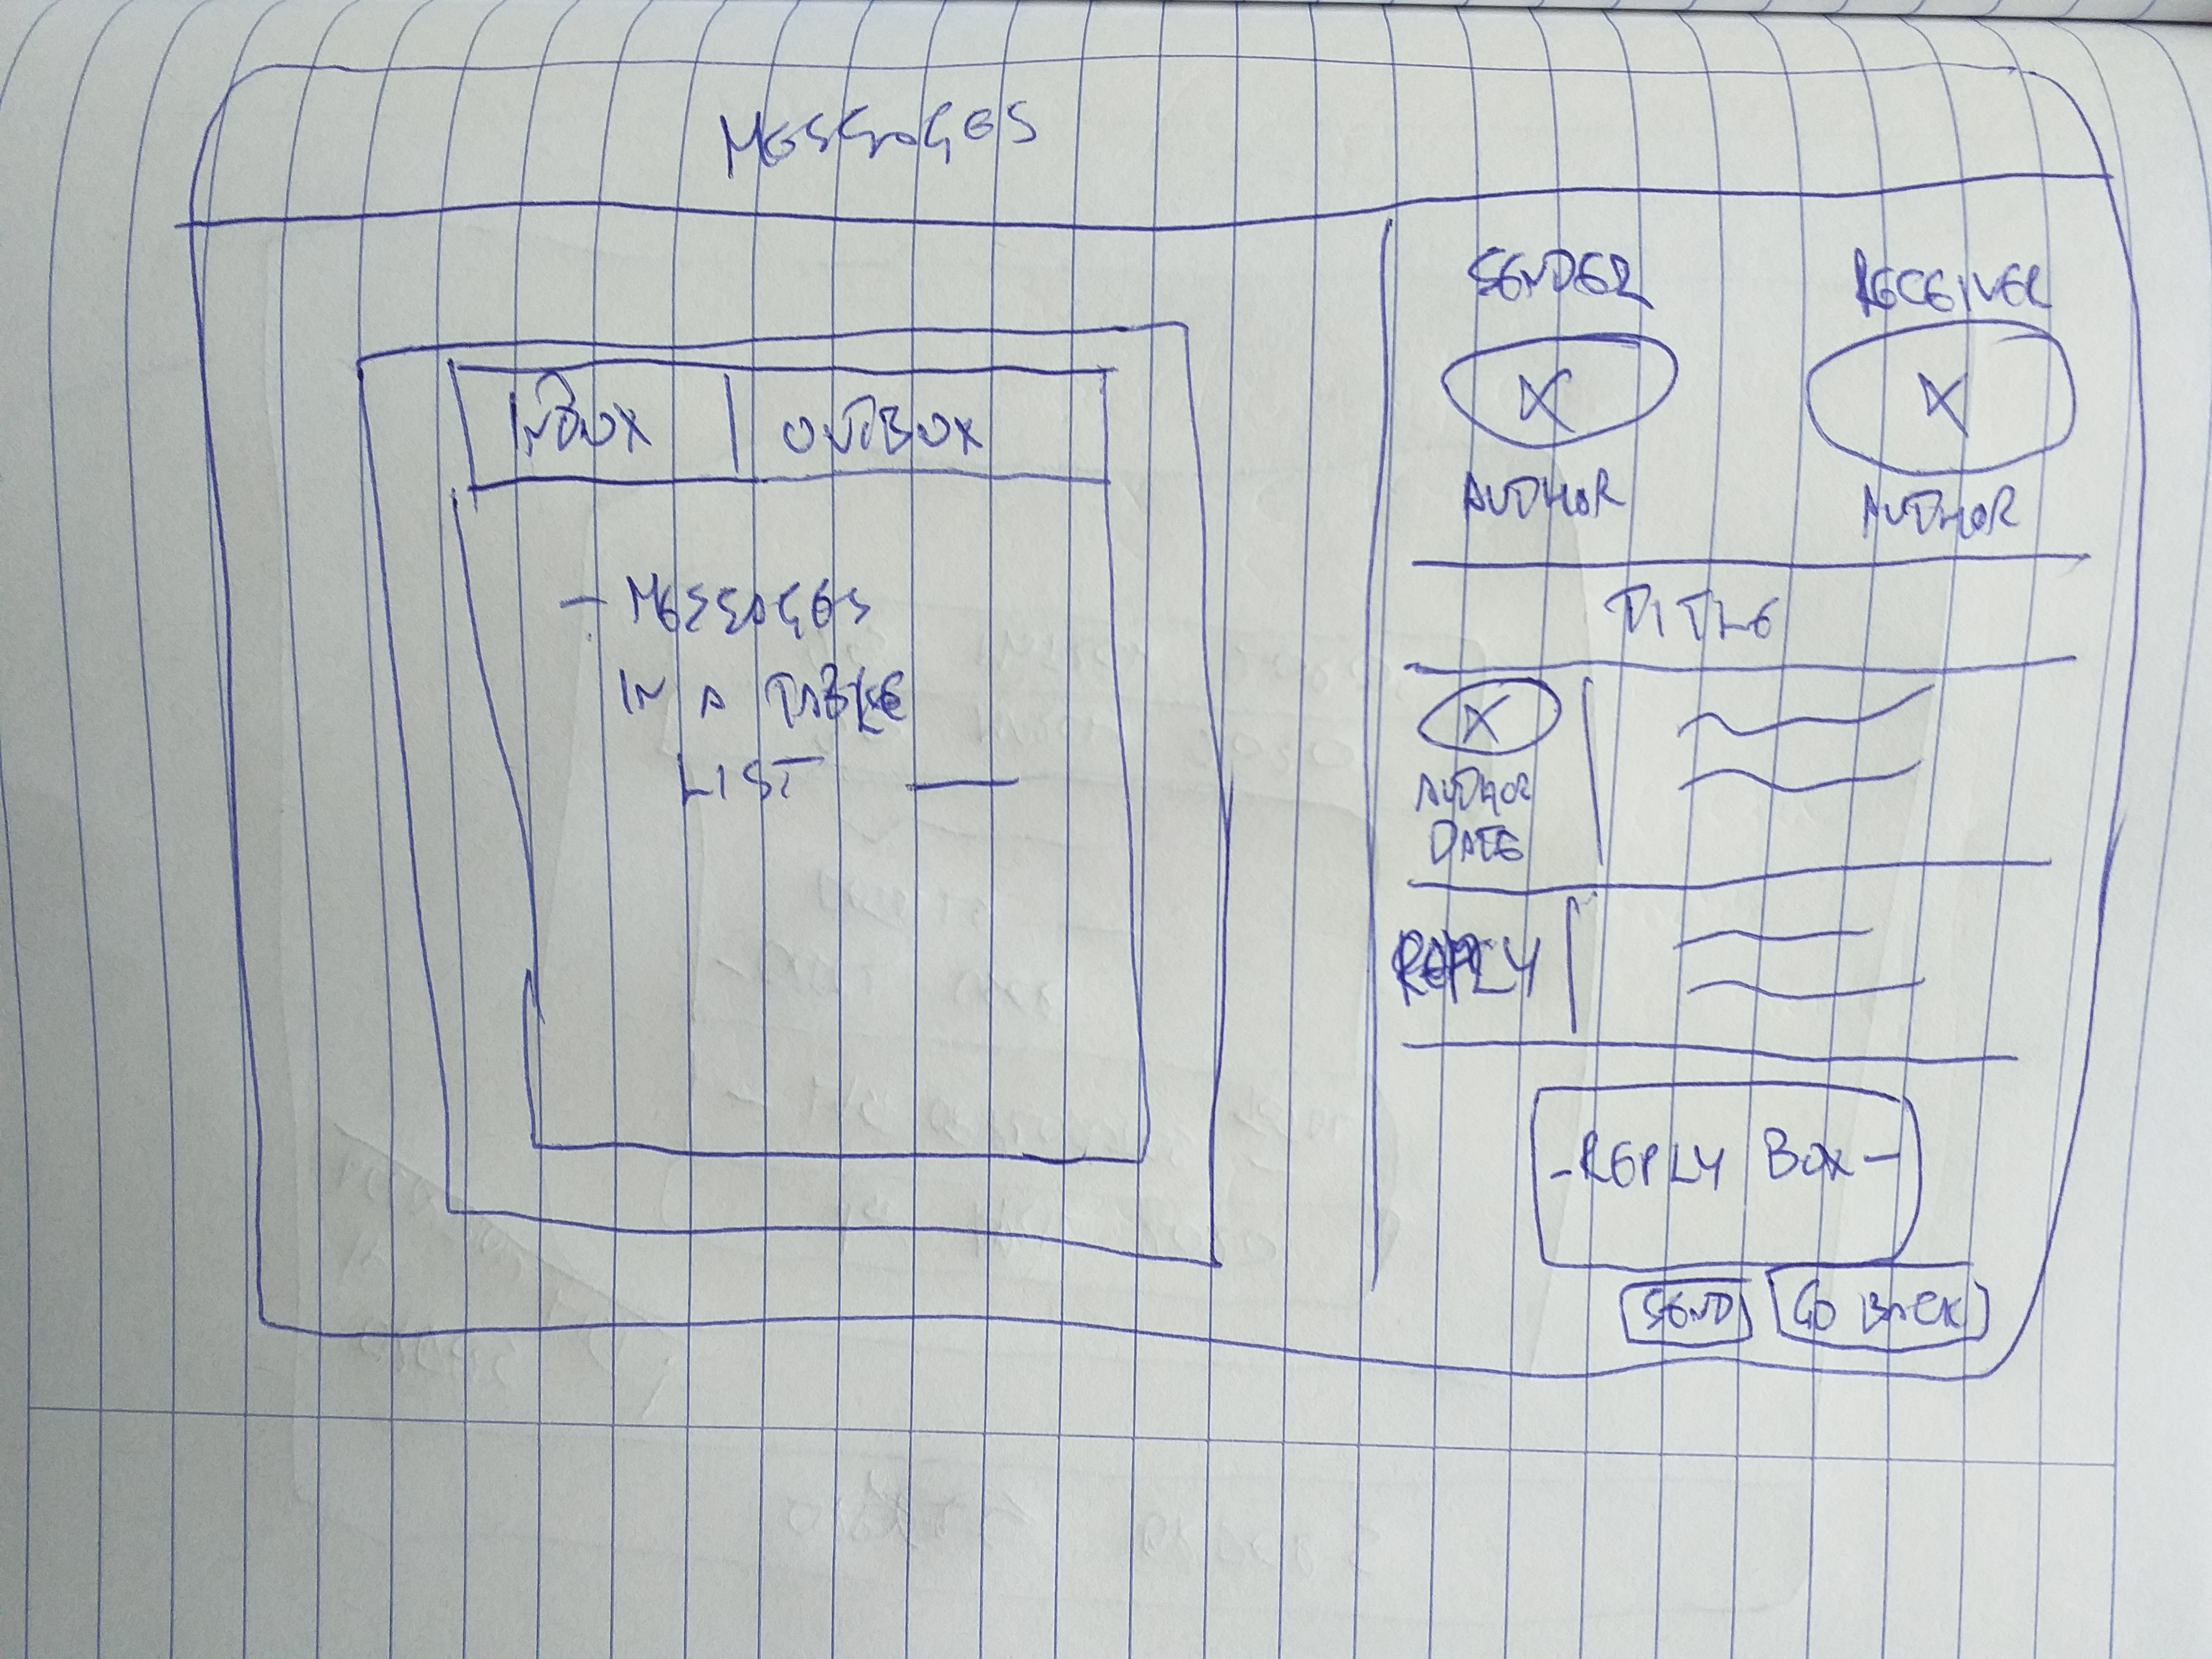 MESSAGES
INBOX | OUTBOX
- MESSAGES
IN A TABLE
LIST —
SENDER RECEIVER
X X
AUTHOR AUTHOR
TITLE
X
AUTHOR
DATE
REPLY
- REPLY BOX -
SEND GO BACK